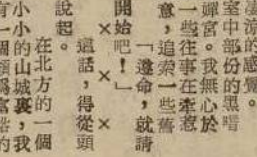 淒涼的感覺。
室中部份的黑暗
嬋宮。我無心於
一些往事在牽惹
意,追索一些舊
「遵命,就請
開始吧!」
× × ×
這話,得從頭
說起。
在北方的一個
小小的山城裏,我
有一個頗為富裕的